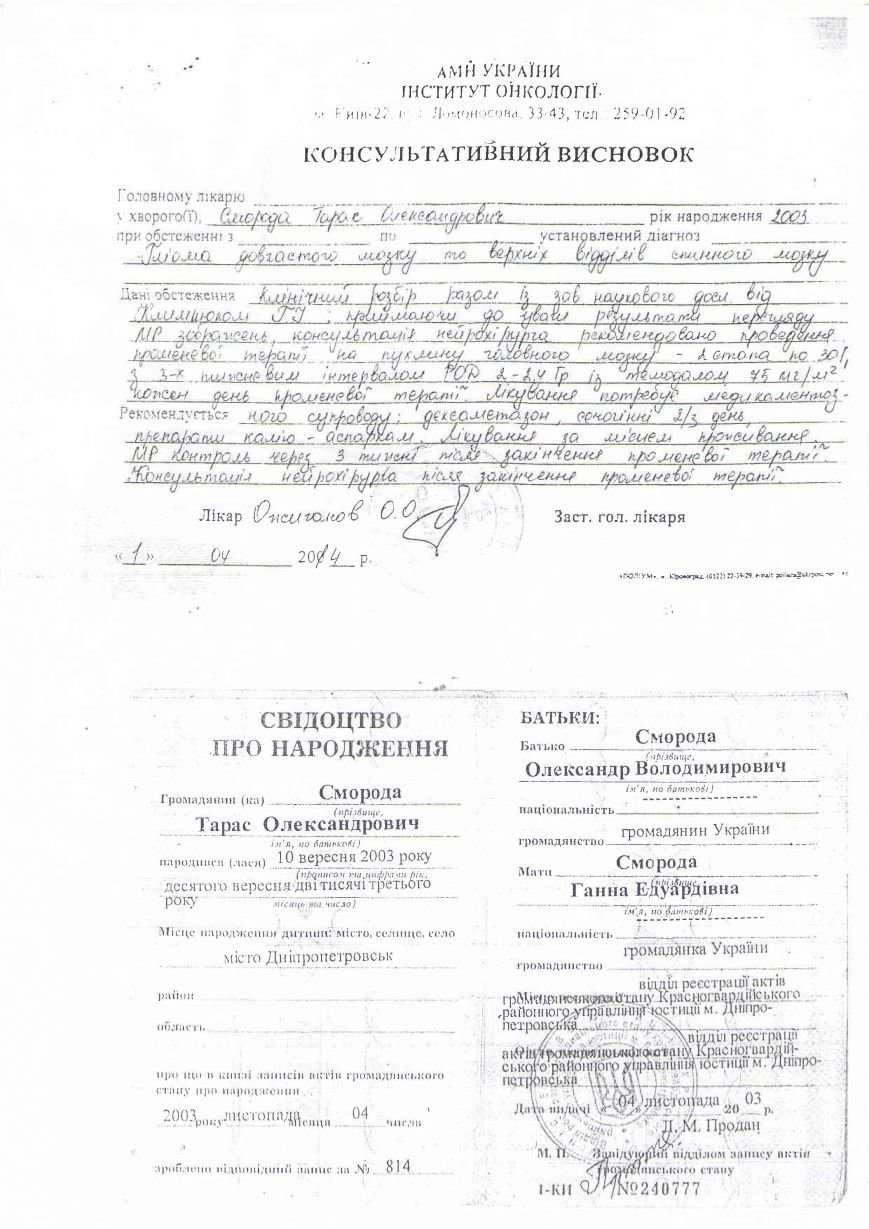 АМН УКРАЇНИ
ІНСТИТУТ ОНКОЛОГІЇ
Київ-22, Ломоносова, 33-43, тел.: 259-01-92
КОНСУЛЬТАТИВНИЙ ВИСНОВОК
Головному лікарю
у хворого(ї), Сморода Тарас Олександрович рік народження 2003
при обстеженні з по установлений діагноз
Гліома довгастого мозку та верхніх відділів спинного мозку
Дані обстеження Клінічний розбір разом із зав наукового від
Климнюком Г.І; приймаючи до уваги результати перегляду
МР зображень, консультація нейрохірурга рекомендовано проведення
променевої терапії на пухлину головного мозку - 2 етапа по 30 Г,
з 3-х тижневим інтервалом РОД 2-2,4 Гр із темодалом 75 мг/м²
кожен день променевої терапії. Лікування потребує медикаментоз-
Рекомендується ного супроводу; дексаметазон, сечогінні 2/3 день,
препарати калію - аспаркам. Лікування за місцем проживання
МР контроль через 3 тижні після закінчення променевої терапії.
Консультація нейрохірурга після закінчення променевої терапії
Лікар О.О. Заст. гол. лікаря
«1» 04 2014 р.
«ПОЛІУМ», м. Кіровоград, (0522) 22-79-29
СВІДОЦТВО
ПРО НАРОДЖЕННЯ
Громадянин (ка) Сморода
(прізвище,
Тарас Олександрович
ім'я, по батькові)
народився (лася) 10 вересня 2003 року
(прописом та цифрами рік,
десятого вересня дві тисячі третього
року місяць та число)
Місце народження дитини: місто, селище, село
місто Дніпропетровськ
район
область
про що в книзі записів актів громадянського
стану про народження
2003 року листопада місяця 04 числа
зроблено відповідний запис за № 814
БАТЬКИ:
Батько Сморода
(прізвище,
Олександр Володимирович
ім'я, по батькові)
національність
громадянство громадянин України
Мати Сморода
(прізвище,
Ганна Едуардівна
ім'я, по батькові)
національність
громадянство громадянка України
відділ реєстрації актів
громадянського стану Красногвардійського
районного управління юстиції м. Дніпро-
петровська
відділ реєстрації
актів громадянського стану Красногвардій-
ського районного управління юстиції м. Дніпро-
петровська
Дата видачі «04» листопада 2003 р.
Л. М. Продан
М. П. Завідуючий відділом запису актів
громадянського стану
І-КИ №240777